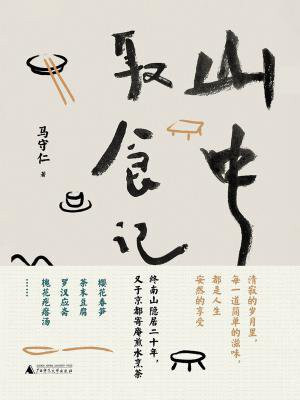 山中
取食记
马守仁 著
清寂的岁月里,
每一道简单的滋味,
都是人生
安然的享受
终南山隐居二十年,
又于京都寄庵煎水烹茶
樱花春笋
茶末豆腐
罗汉应斋
槐花疙瘩汤
……
广西师范大学出版社